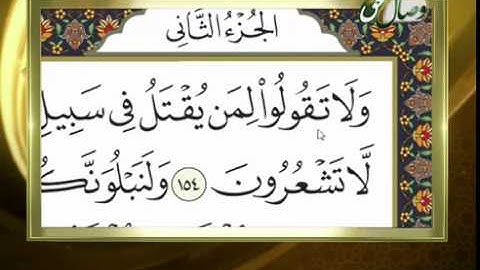 وصال حق
الجُزْءُ الثَّانِى
وَلَا تَقُولُوا۟ لِمَن يُقْتَلُ فِى سَبِيلِ
لَّا تَشْعُرُونَ ١٥٤ وَلَنَبْلُوَنَّكُ